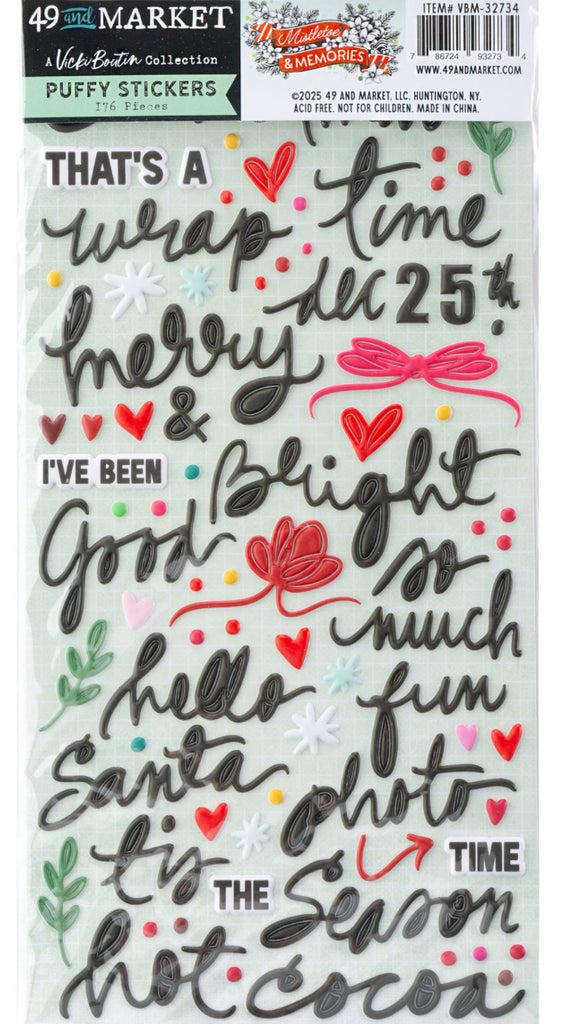 49 and MARKET
A Vicki Boutin Collection
PUFFY STICKERS
176 Pieces
Mistletoe
& MEMORIES
ITEM# VBM-32734
7 86724 93273 4
WWW.49ANDMARKET.COM
©2025 49 AND MARKET, LLC. HUNTINGTON, NY.
ACID FREE. NOT FOR CHILDREN. MADE IN CHINA.
THAT'S A
wrap
time
dec 25th.
merry
&
Bright
I'VE BEEN
Good
so
much
fun
hello
Santa
photo
TIME
tis
THE
Season
hot cocoa